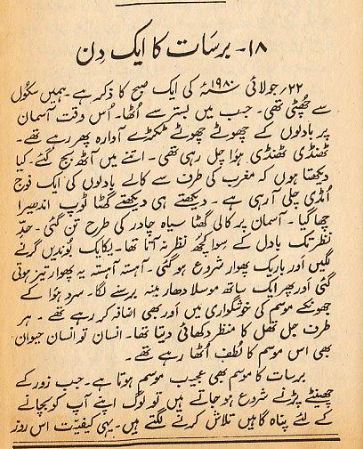 ۱۸۔ برسَات کا ایک دِن
۲۲؍ جولائی ۱۹۸۰ء کی ایک صبح کا ذکر ہے۔ ہمیں سکُول
سے چھُٹی تھی۔ جب میں بستر سے اُٹھا۔ اُس وقت آسمان
پر بادلوں کے چھوٹے چھوٹے ٹکڑے آوارہ پھر رہے تھے۔
ٹھنڈی ٹھنڈی ہوا چل رہی تھی۔ اتنے میں آٹھ بج گئے۔ کیا
دیکھتا ہوں کہ مغرب کی طرف سے کالے بادلوں کی ایک فوج
اُمڈی چلی آرہی ہے۔ دیکھتے ہی دیکھتے گھٹا ٹوپ اندھیرا
چھا گیا۔ آسمان پر کالی گھٹا سیاہ چادر کی طرح تن گئی۔ حدِّ
نظر تک بادل کے سِوا کچھ نظر نہ آتا تھا۔ یکایک بُوندیں گرنے
لگیں اَور باریک پھوار شروع ہو گئی۔ آہستہ آہستہ یہ پھوار تیز ہوتی
گئی اَور پھر ایک ساتھ موسلا دھار مینہ برسنے لگا۔ سرد ہوا کے
جھونکے موسم کی خوشگواری میں اَور بھی اضافہ کر رہے تھے۔ ہر
طرف جل تھل کا منظر دکھائی دیتا تھا۔ انسان تو انسان حیوان
بھی اس موسم کا لُطف اُٹھا رہے تھے۔
برسات کا موسم بھی عجیب موسم ہوتا ہے۔ جب زور کے
چھینٹے پڑنے شروع ہو جاتے ہیں تو لوگ اپنے آپ کو بچانے
کے لئے پناہ گاہیں تلاش کرنے لگتے ہیں۔ یہی کیفیّت اس روز